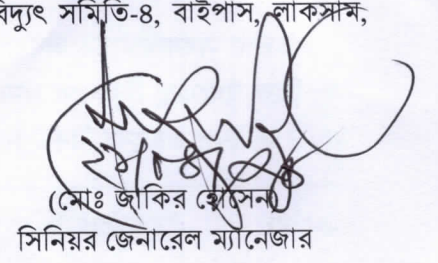 বিদ্যুৎ সমিতি-৪, বাইপাস, লাকসাম,
(মোঃ জাকির হোসেন)
সিনিয়র জেনারেল ম্যানেজার